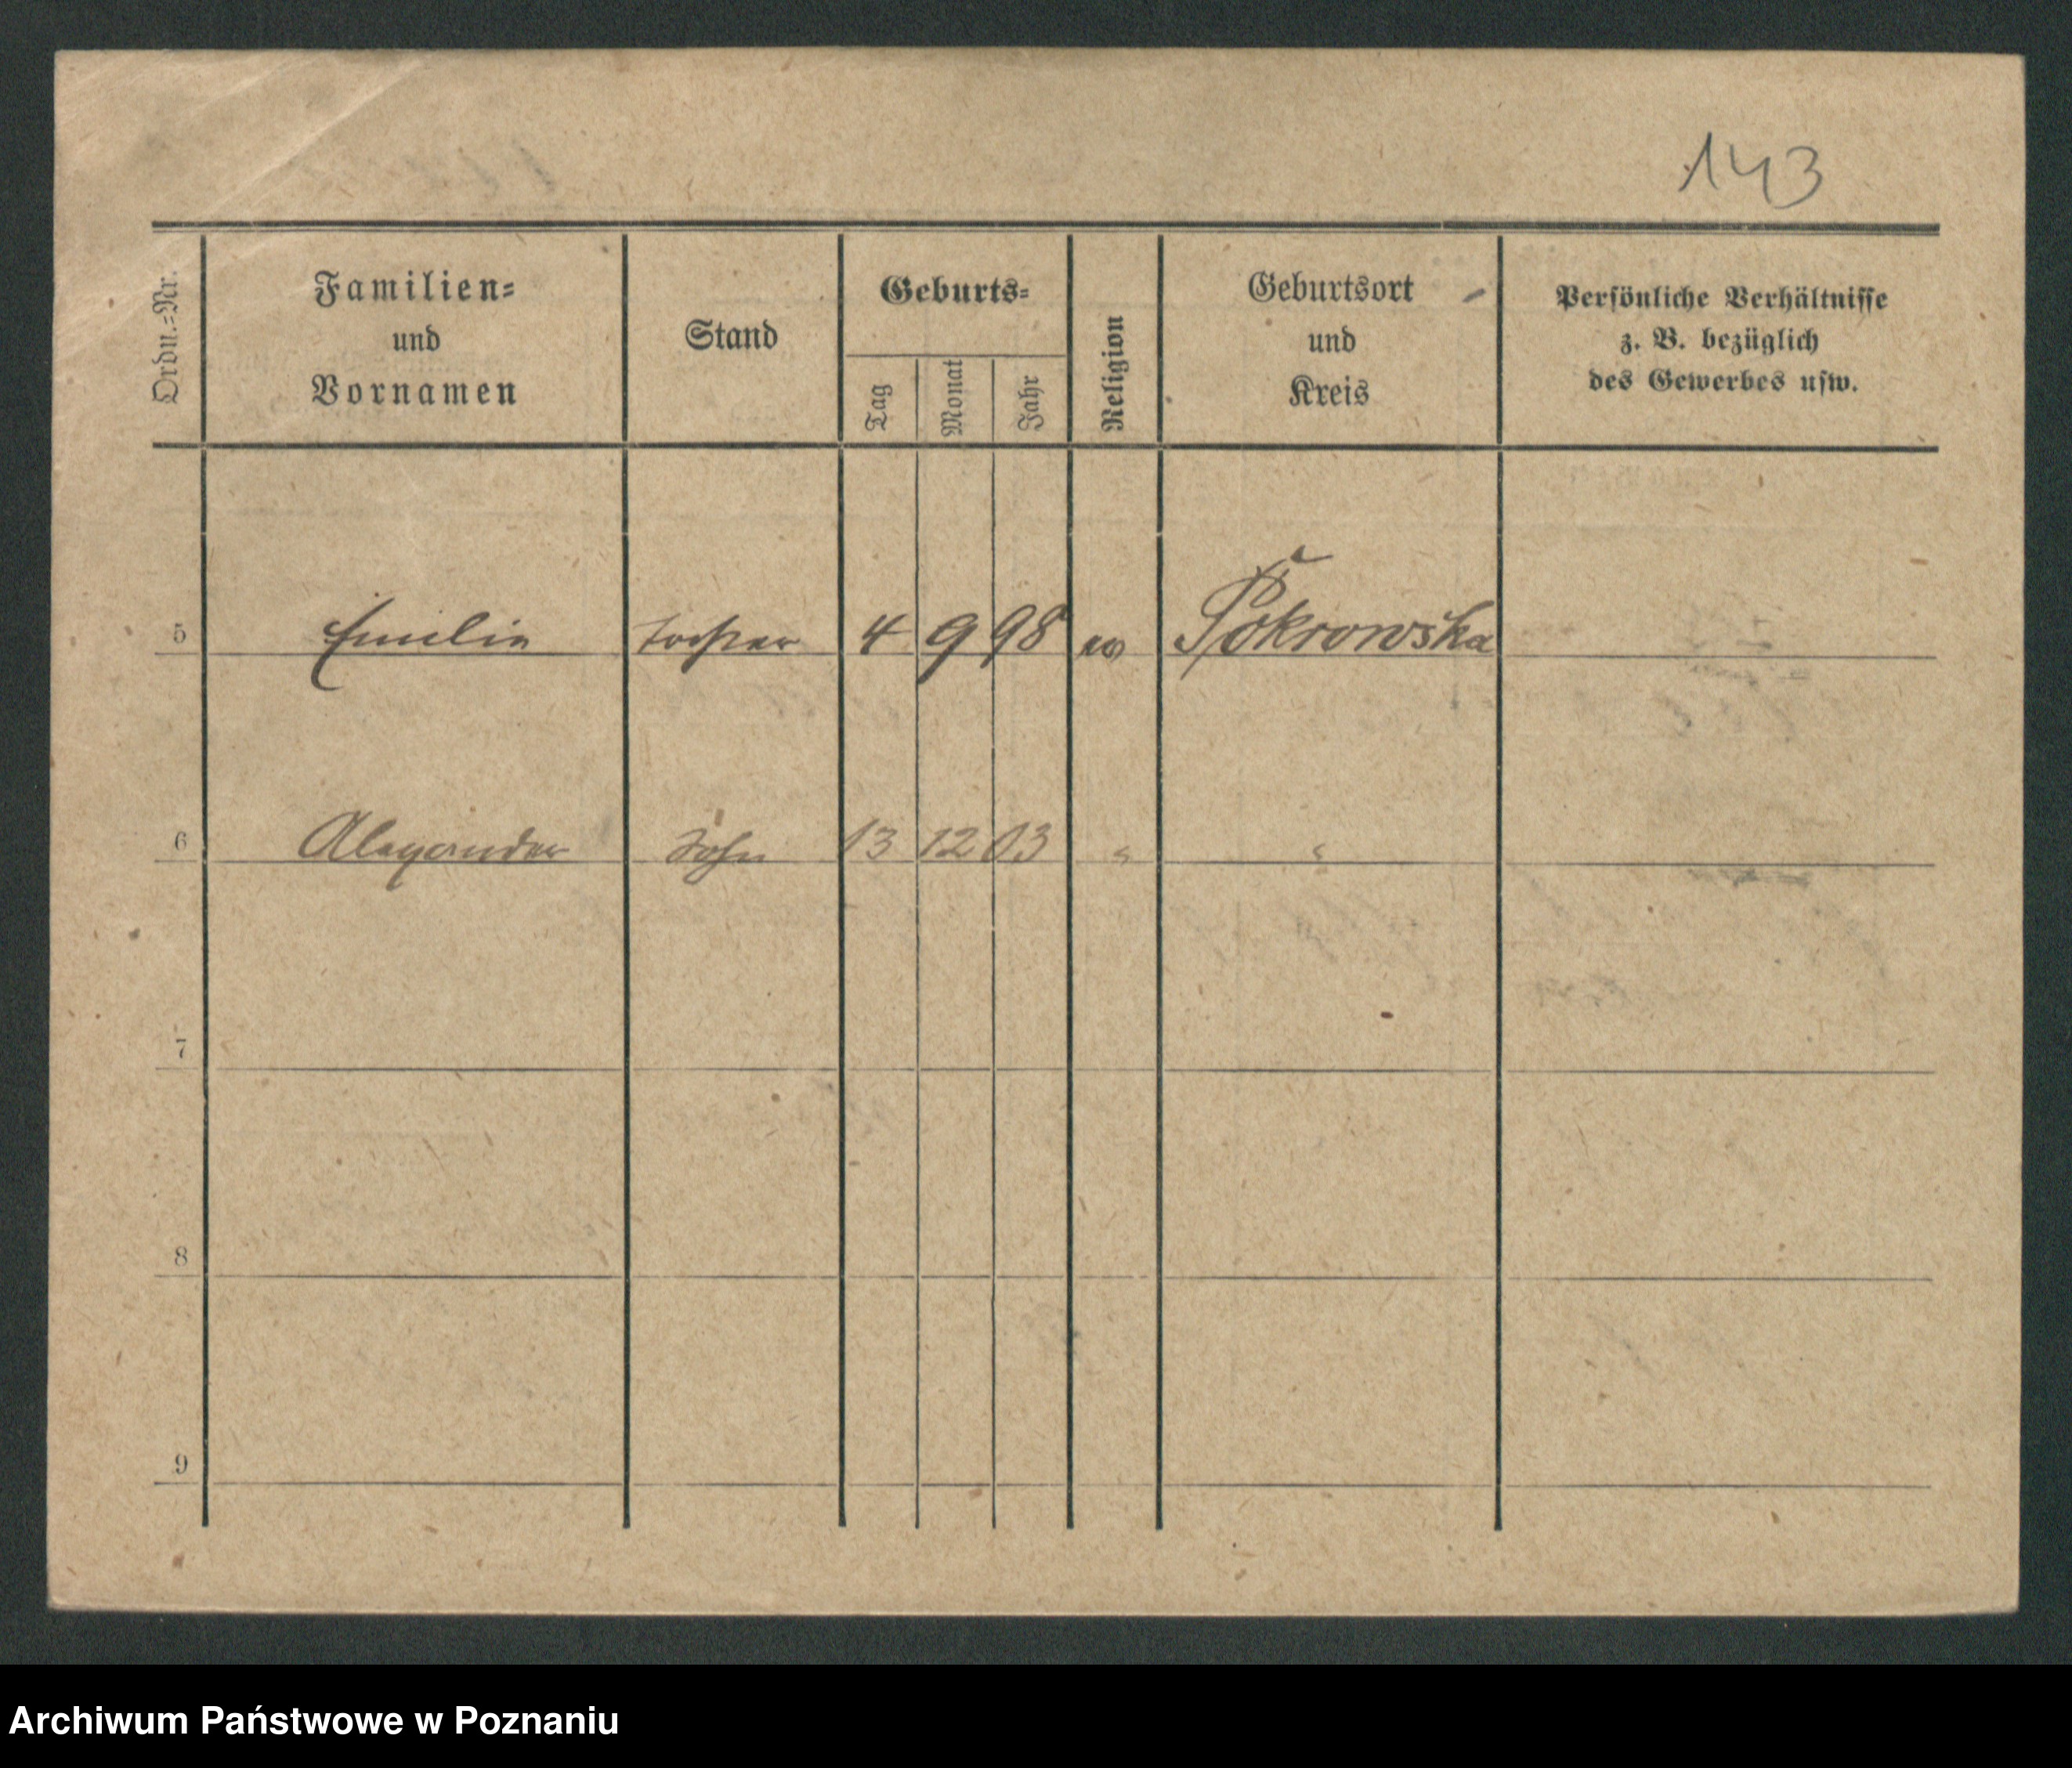 143
Ordn.=Nr.
Familien=
und
Vornamen
Stand
Geburts=
Tag
Monat
Jahr
Religion
Geburtsort
und
Kreis
Persönliche Verhältnisse
z. B. bezüglich
des Gewerbes usw.
5 Emilie Tochter 4 9 98 ev Pokrowska
6 Alexander Sohn 13 12 03 " "
7
8
9
Archiwum Państwowe w Poznaniu